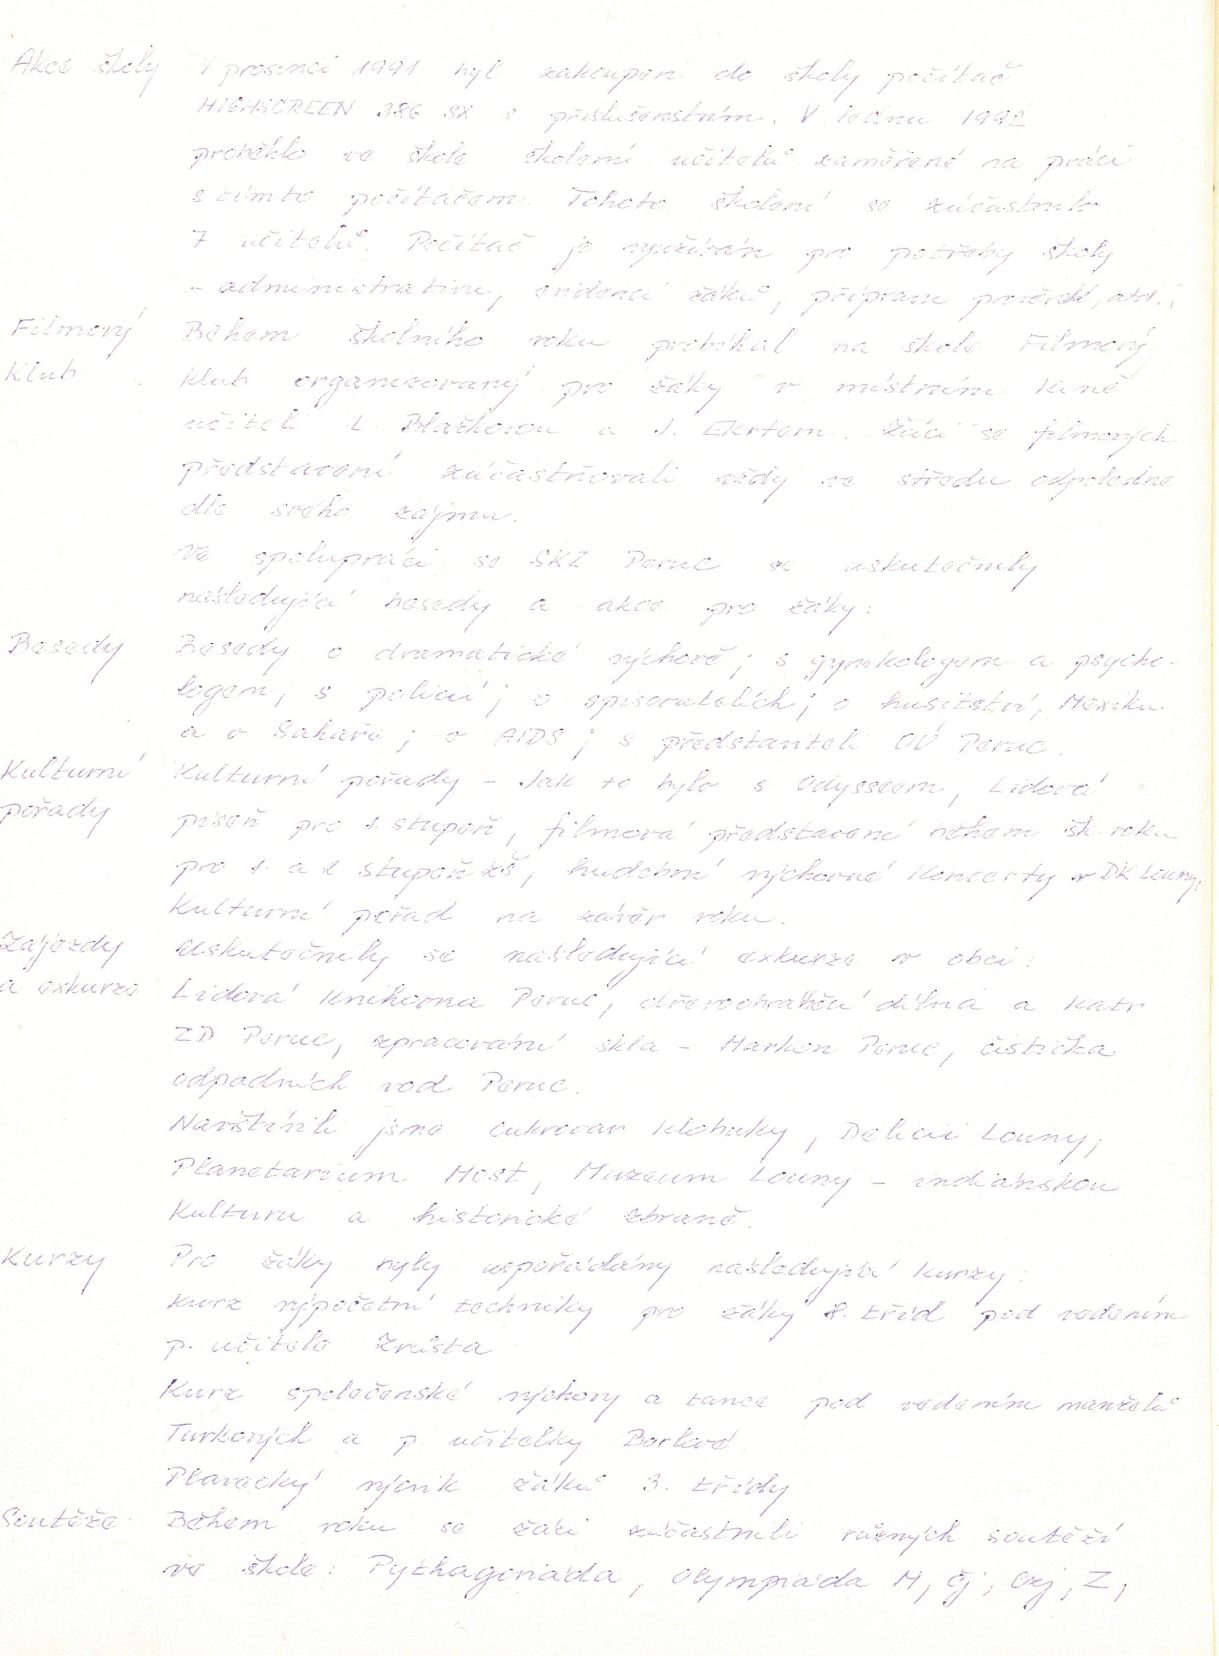 Akce školy V prosinci 1991 byl zakoupen do školy počítač
HIGHSCREEN 386 SX s příslušenstvím. V lednu 1992
proběhlo ve škole školení učitelů zaměřené na práci
s tímto počítačem. Tohoto školení se zúčastnilo
7 učitelů. Počítač je využíván pro potřeby školy
- administrativu, evidenci žáků, přípravu prověrek, atd.;
Filmový Během školního roku probíhal na škole Filmový
klub klub organizovaný pro žáky v místním kině
učiteli L. Blažkovou a J. Ekrtem. Žáci se filmových
představení zúčastňovali vždy ve středu odpoledne
dle svého zájmu.
Ve spolupráci se SKZ Peruc se uskutečnily
následující besedy a akce pro žáky:
Besedy Besedy o dramatické výchově; s gynekologem a psycho-
logem; s policií; o spisovatelích; o husitství, Mexiku
a o Sahaře; o AIDS; s představiteli OÚ Peruc.
Kulturní Kulturní pořady - Jak to bylo s Odysseem, Lidová
pořady píseň pro 1. stupeň, filmová představení během šk. roku
pro 1. a 2. stupeň ZŠ, hudebně výchovné koncerty v DK Louny,
Kulturní pořad na závěr roku.
Zájezdy Uskutečnily se následující exkurze v obci:
a exkurze Lidová knihovna Peruc, dřevoobráběcí dílna a katr
ZD Peruc, zpracování skla - Markon Peruc, čistička
odpadních vod Peruc.
Navštívili jsme cukrovar Klobuky, Delicii Louny,
Planetarium Most, Muzeum Louny - indiánskou
kulturu a historické zbraně.
Kurzy Pro žáky byly uspořádány následující kurzy:
kurz výpočetní techniky pro žáky 8. tříd pod vedením
p. učitele Zrústa
Kurz společenské výchovy a tance pod vedením manželů
Turkových a p. učitelky Borkové.
Plavecký výcvik žáků 3. třídy
Soutěže Během roku se žáci zúčastnili různých soutěží
ve škole: Pythagoriáda, Olympiáda M, Čj, Czj, Z,